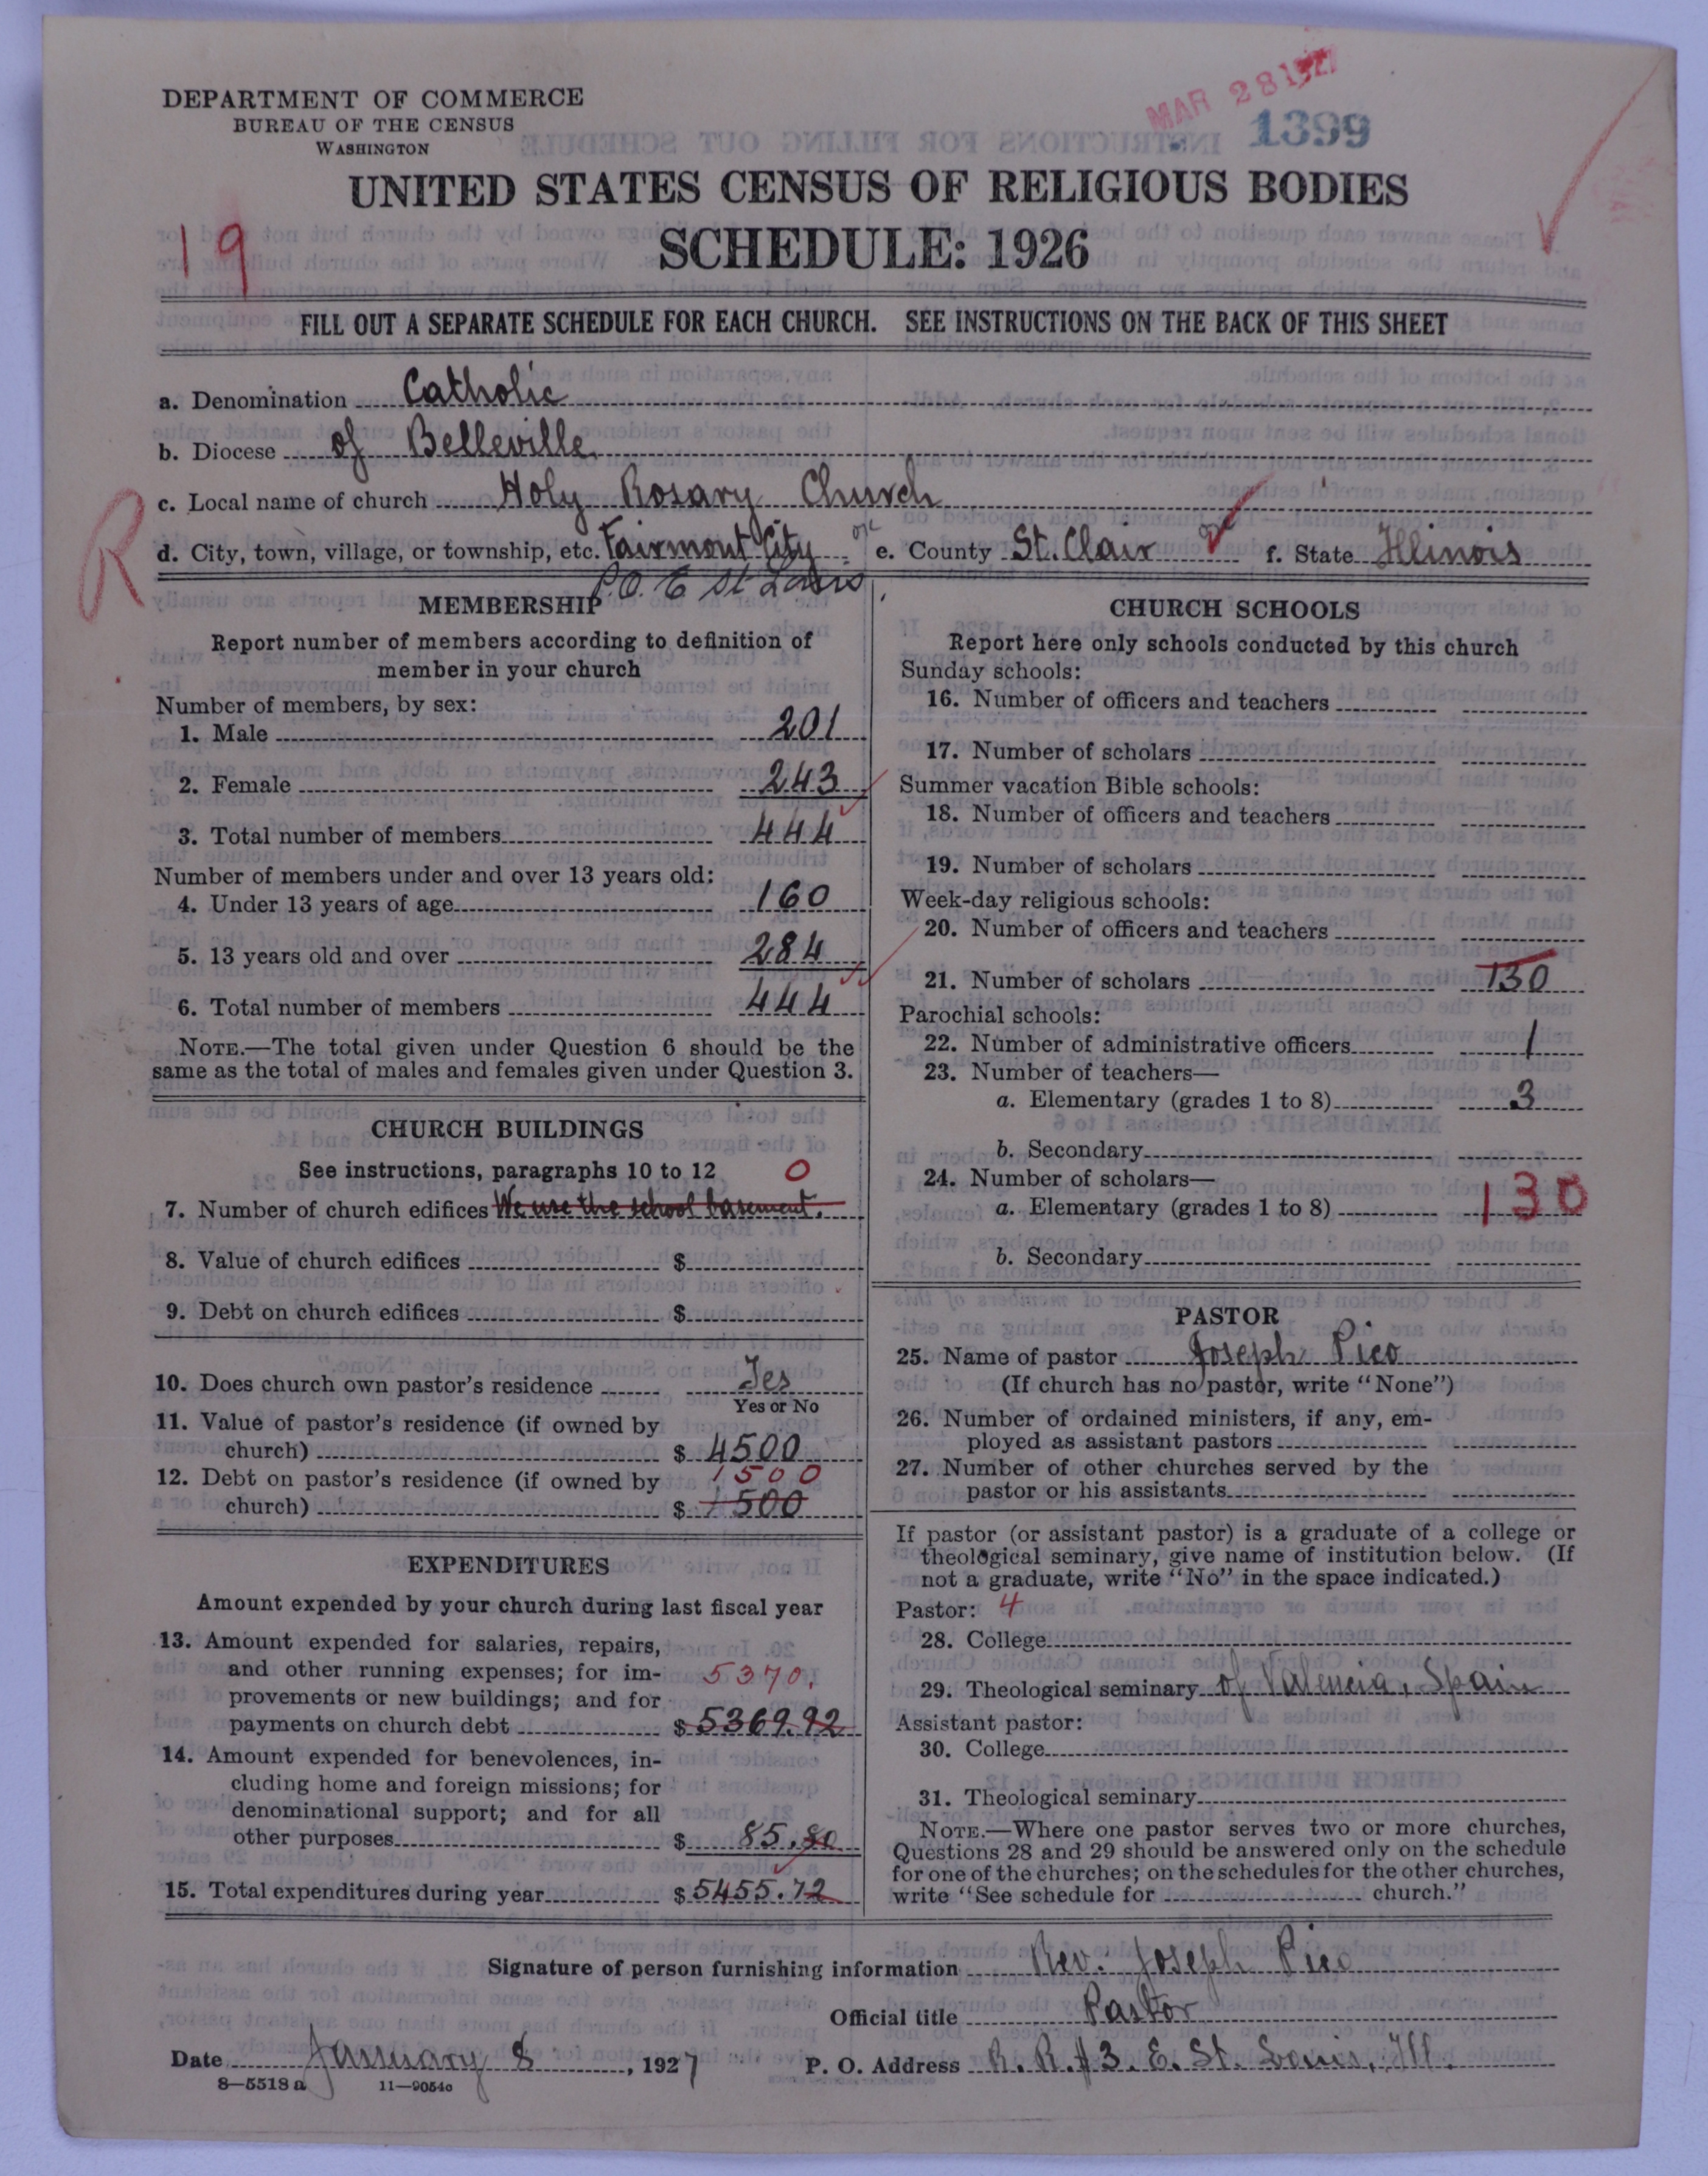 DEPARTMENT OF COMMERCE
BUREAU OF THE CENSUS
WASHINGTON
MAR 28 1927
1399
UNITED STATES CENSUS OF RELIGIOUS BODIES
SCHEDULE: 1926
19
FILL OUT A SEPARATE SCHEDULE FOR EACH CHURCH. SEE INSTRUCTIONS ON THE BACK OF THIS SHEET
a. Denomination Catholic
b. Diocese of Belleville
c. Local name of church Holy Rosary Church
R
d. City, town, village, or township, etc. Fairmont City ok e. County St. Clair f. State Illinois
P.O. E St Louis
MEMBERSHIP
Report number of members according to definition of
member in your church
Number of members, by sex:
1. Male 201
2. Female 243
3. Total number of members 444
Number of members under and over 13 years old:
4. Under 13 years of age 160
5. 13 years old and over 284
6. Total number of members 444
NOTE.—The total given under Question 6 should be the
same as the total of males and females given under Question 3.
CHURCH BUILDINGS
See instructions, paragraphs 10 to 12 0
7. Number of church edifices We use the school basement.
8. Value of church edifices $
9. Debt on church edifices $
10. Does church own pastor's residence Yes
Yes or No
11. Value of pastor's residence (if owned by
church) $ 4500
12. Debt on pastor's residence (if owned by 1500
church) $ 1500
EXPENDITURES
Amount expended by your church during last fiscal year
13. Amount expended for salaries, repairs,
and other running expenses; for im- 5370.
provements or new buildings; and for
payments on church debt $ 5369.92
14. Amount expended for benevolences, in-
cluding home and foreign missions; for
denominational support; and for all
other purposes $ 85.80
15. Total expenditures during year $ 5455.72
CHURCH SCHOOLS
Report here only schools conducted by this church
Sunday schools:
16. Number of officers and teachers
17. Number of scholars
Summer vacation Bible schools:
18. Number of officers and teachers
19. Number of scholars
Week-day religious schools:
20. Number of officers and teachers
21. Number of scholars 130
Parochial schools:
22. Number of administrative officers 1
23. Number of teachers—
a. Elementary (grades 1 to 8) 3
b. Secondary
24. Number of scholars—
a. Elementary (grades 1 to 8) 130
b. Secondary
PASTOR
25. Name of pastor Joseph Pico
(If church has no pastor, write "None")
26. Number of ordained ministers, if any, em-
ployed as assistant pastors
27. Number of other churches served by the
pastor or his assistants
If pastor (or assistant pastor) is a graduate of a college or
theological seminary, give name of institution below. (If
not a graduate, write "No" in the space indicated.)
Pastor: 4
28. College
29. Theological seminary of Valencia, Spain
Assistant pastor:
30. College
31. Theological seminary
NOTE.—Where one pastor serves two or more churches,
Questions 28 and 29 should be answered only on the schedule
for one of the churches; on the schedules for the other churches,
write "See schedule for church."
Signature of person furnishing information Rev. Joseph Pico
Official title Pastor
Date January 8, 1927 P. O. Address R. R. #3. E. St. Louis, Ill.
8—5518 a 11—9054c